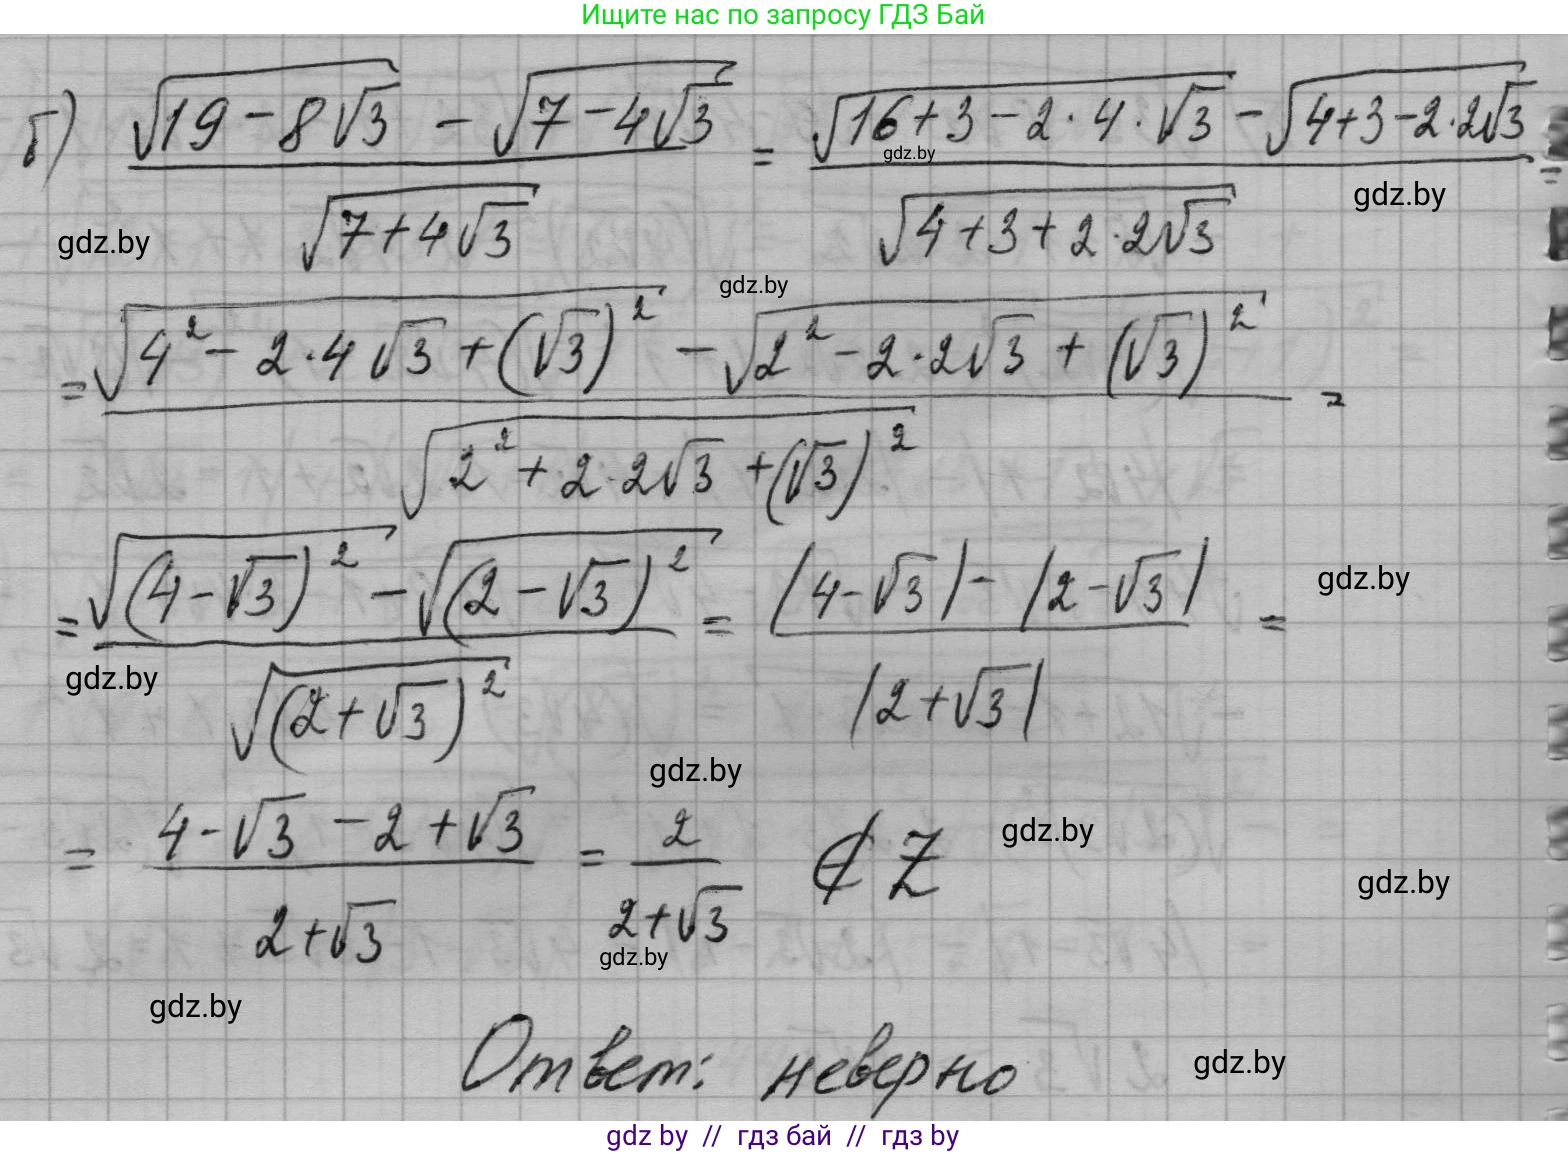 Ищите нас по запросу ГДЗ Бай
б) (√(19 - 8√3) - √(7 - 4√3)) / √(7 + 4√3) = (√(16 + 3 - 2 · 4 · √3) - √(4 + 3 - 2 · 2√3)) / √(4 + 3 + 2 · 2√3) =
gdz.by
gdz.by
gdz.by
gdz.by
= (√(4² - 2 · 4√3 + (√3)²) - √(2² - 2 · 2√3 + (√3)²)) / √(2² + 2 · 2√3 + (√3)²) =
= (√((4 - √3)²) - √((2 - √3)²)) / √((2 + √3)²) = (|4 - √3| - |2 - √3|) / |2 + √3| =
gdz.by
gdz.by
gdz.by
= (4 - √3 - 2 + √3) / (2 + √3) = 2 / (2 + √3) ⊄ Z
gdz.by
gdz.by
gdz.by
gdz.by
Ответ: неверно
gdz.by
gdz by // гдз бай // гдз by